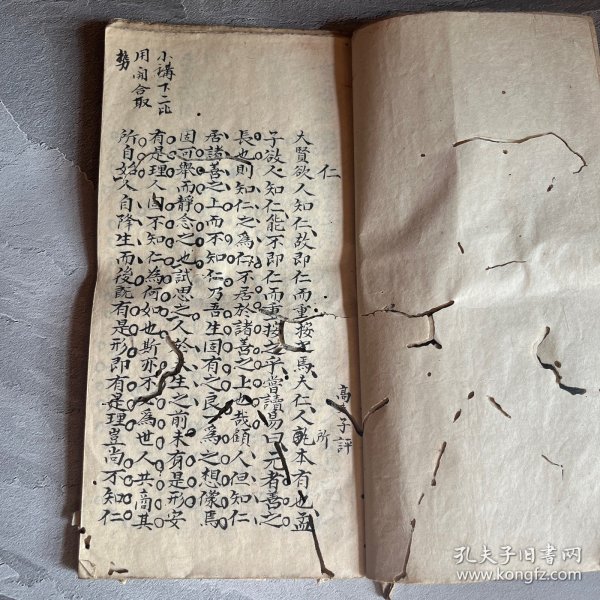 仁
高子評
大賢欲人知仁故即仁而重按焉夫仁人所本有也孟
子欲人知仁能不即仁而重按之乎嘗讀易曰元者善之
長也則知仁之為仁不居於諸善之上也哉顧人但知仁
居諸善之上而不知仁乃吾生固有之良為之想像焉
因可舉而靜念之也試思之人於生之前未有是形安
有是理人固不知仁為何如也斯亦不為世人共商其
所自始人自降生而後既有是形即有是理豈尚不知仁
小講下二比
用開合取
勢
孔夫子旧書网
www.kongfz.com